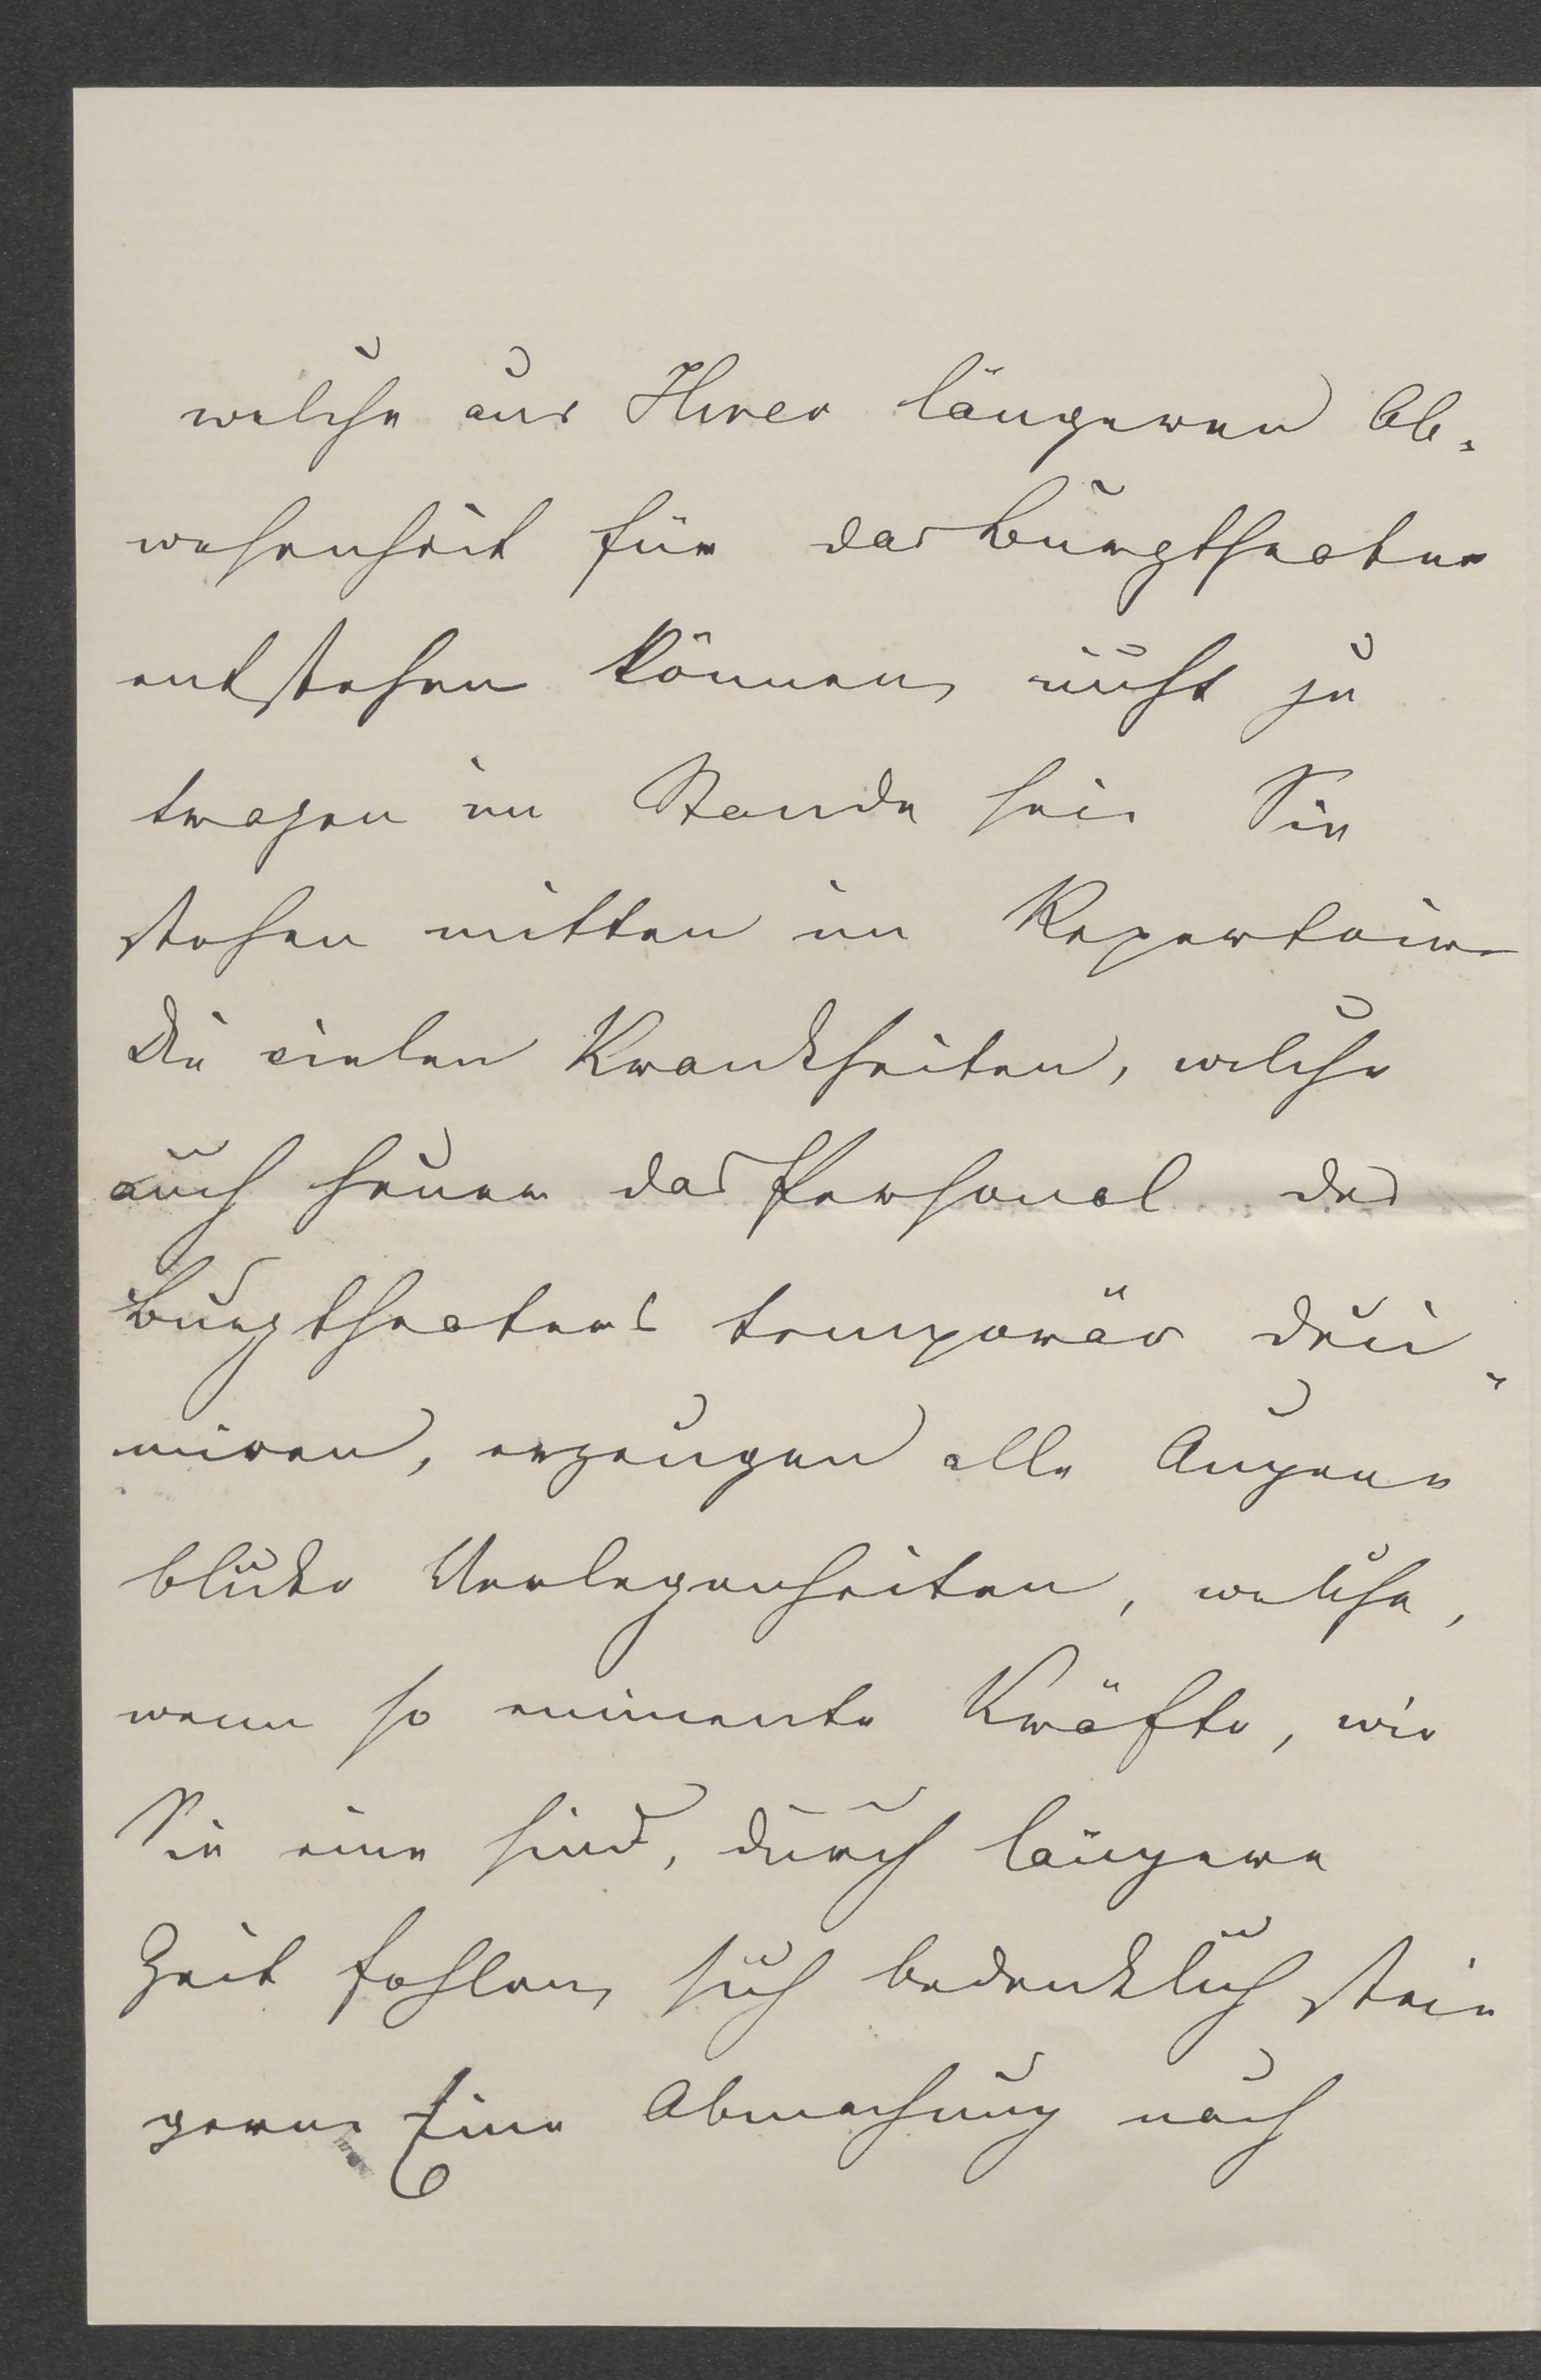 welche aus Ihrer längeren Ab-
wesenheit für das Burgtheater
entstehen können, nicht zu
tragen im Stande sei. Sie
stehen mitten im Repertoire
Die vielen Krankheiten, welche
auch heuer das Personal des
Burgtheaters temporär deci-
miren, erzeugen alle Augen-
blicke Verlegenheiten, welche,
wenn so eminente Kräfte, wie
Sie eine sind, durch längere
Zeit fehlen, sich bedenklich stei-
gern. Eine Abmachung nach